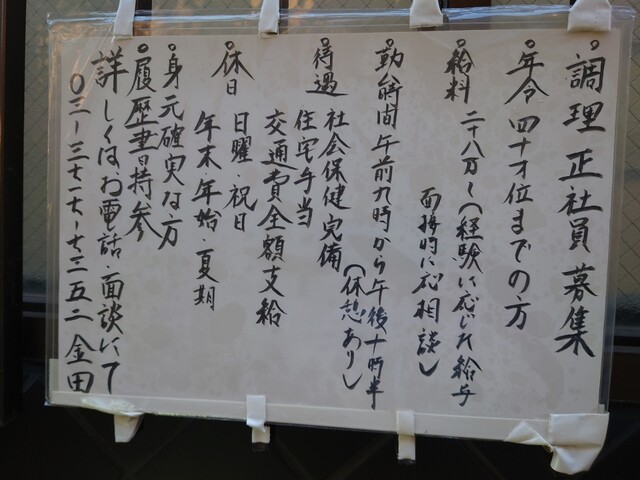 調理正社員募集
年令 四十才位までの方
給料 二十八万〜(経験に応じた給与
面接時に応相談)
勤務時間 午前九時から午後十時半
(休憩あり)
待遇 社会保健完備
住宅手当
交通費全額支給
休日 日曜・祝日
年末・年始・夏期
身元確実な方
履歴書持参
詳しくはお電話・面談にて
〇三-三七一七-七三五二 金田